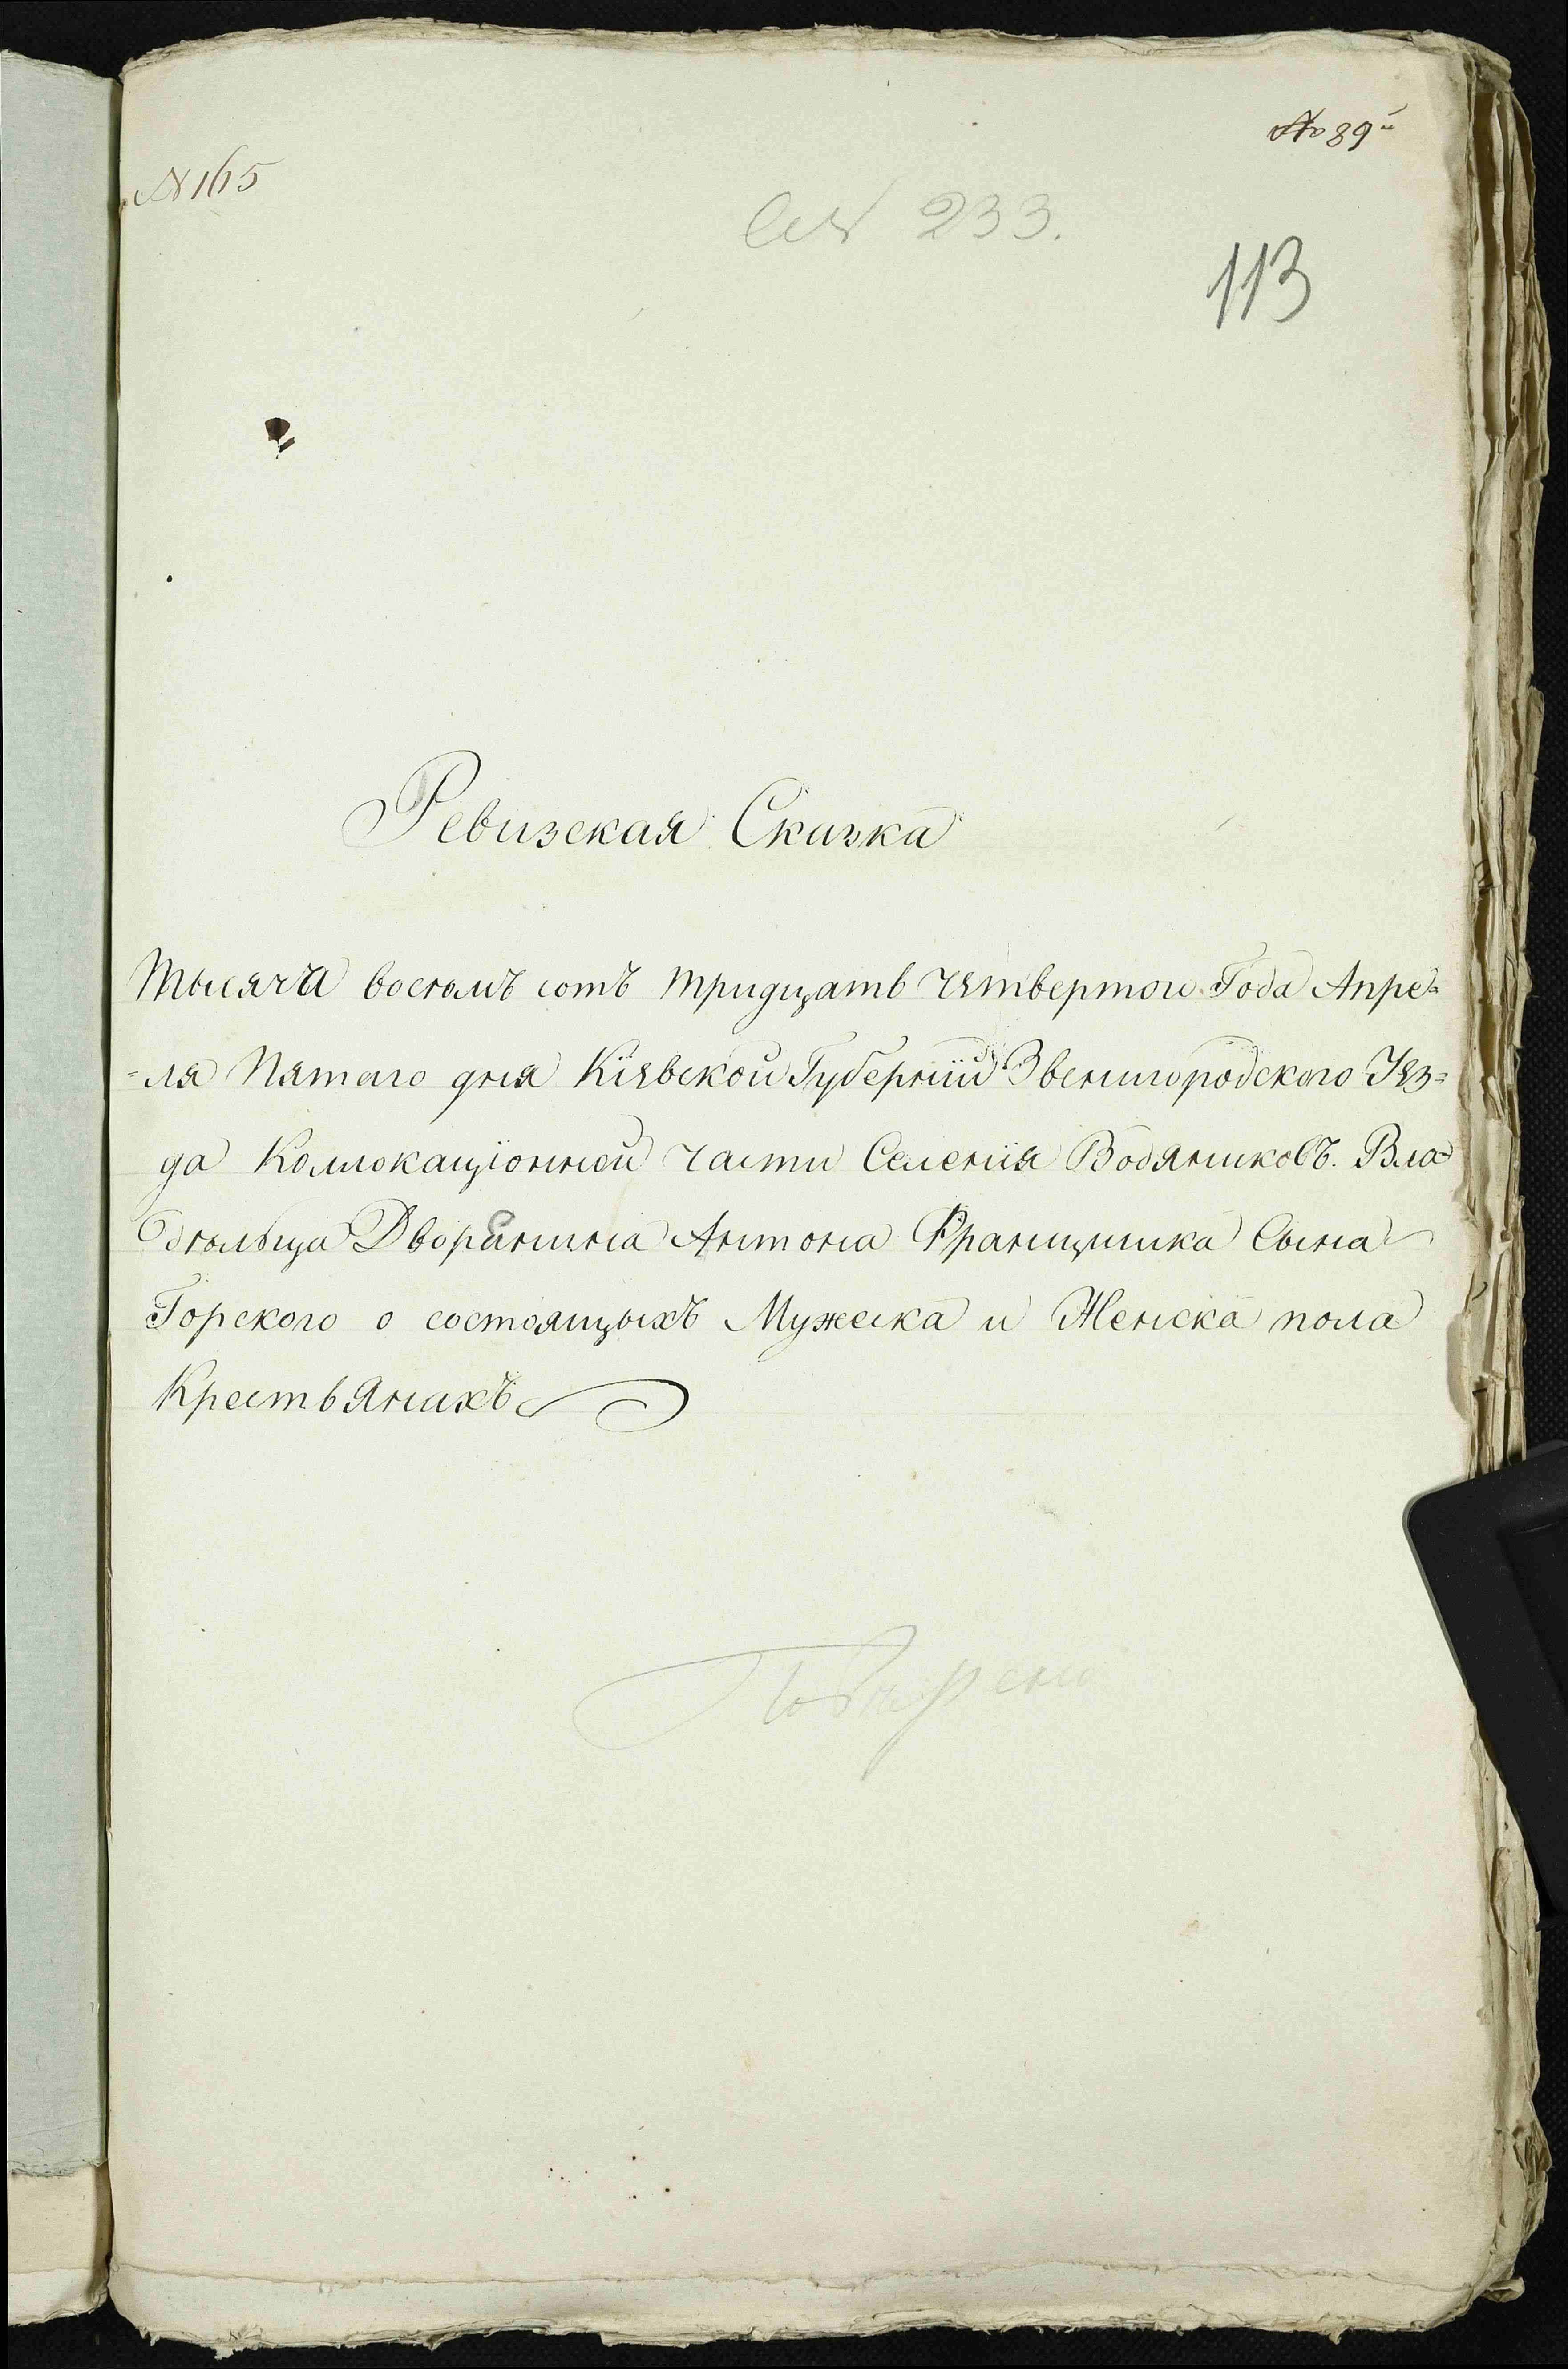 № 89й
№ 165
№ 233.
113
Ревизская Сказка
Тысяча восемъ сотъ тридцать Четвертого Года Апре=
=ля Пятого дня Кіевской Губерніи Звенигородского Уез=
да Коллокаціонной части Селенія Водяниковъ. Вла=
дельца Дворянина Антона Францишка Сына
Горского о состоящыхъ Мужеска и Женска пола
Крестьянахъ